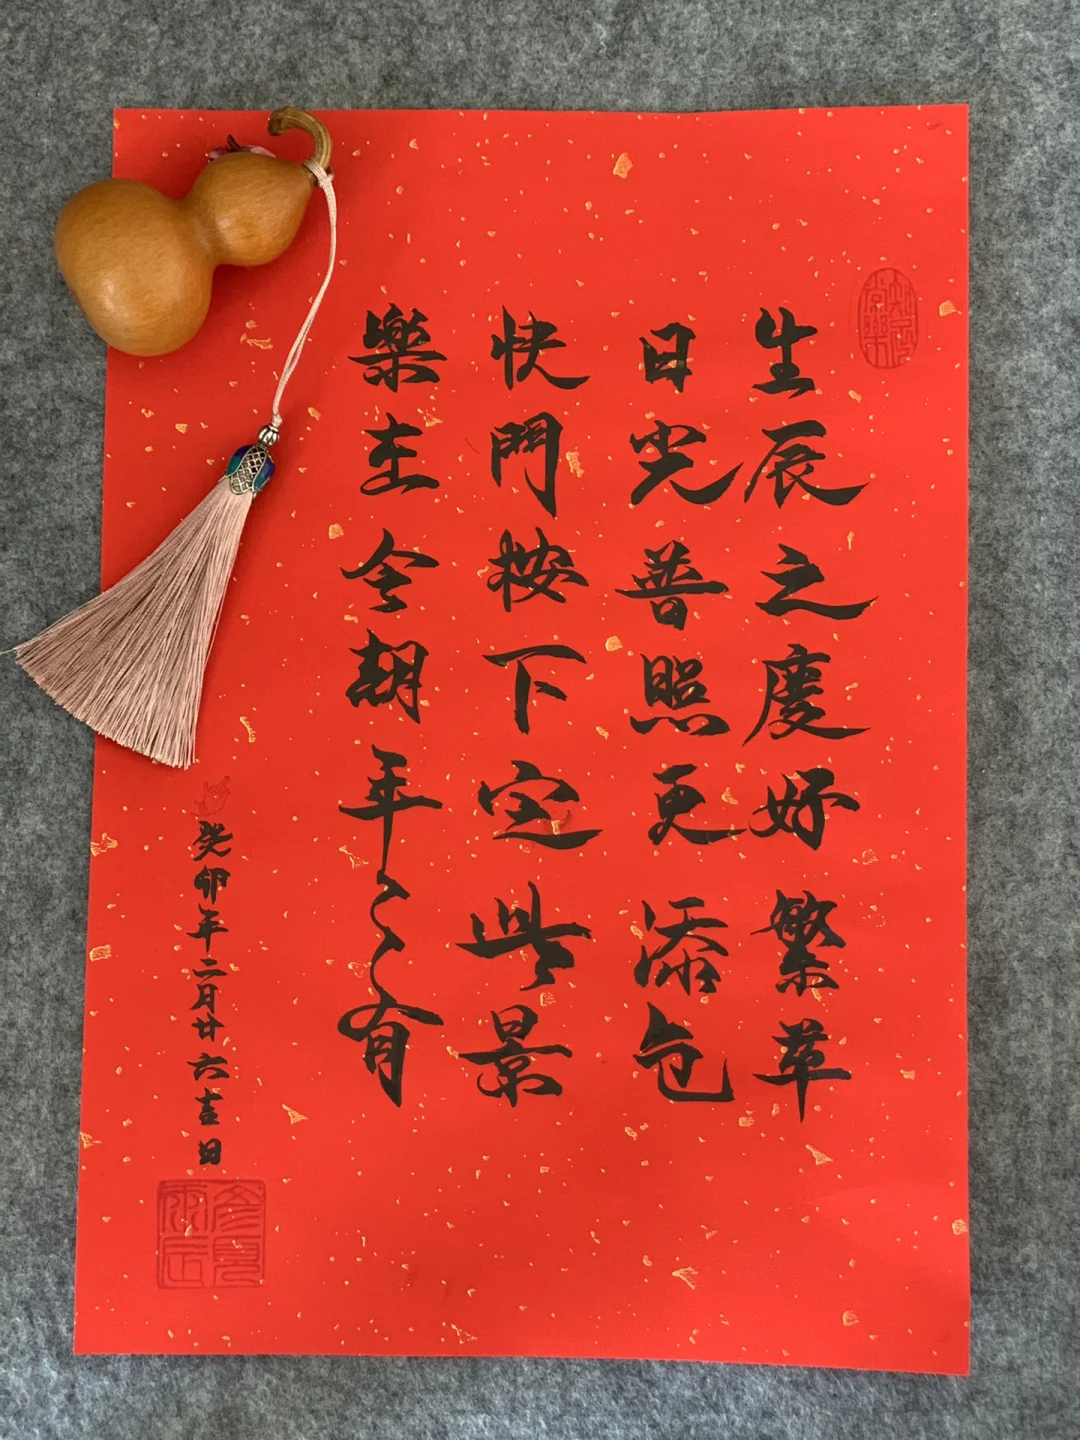 知足常樂
生辰之慶好繁華
日光普照更添色
快門按下定此景
樂在今朝年々有
癸卯年二月廿六吉日